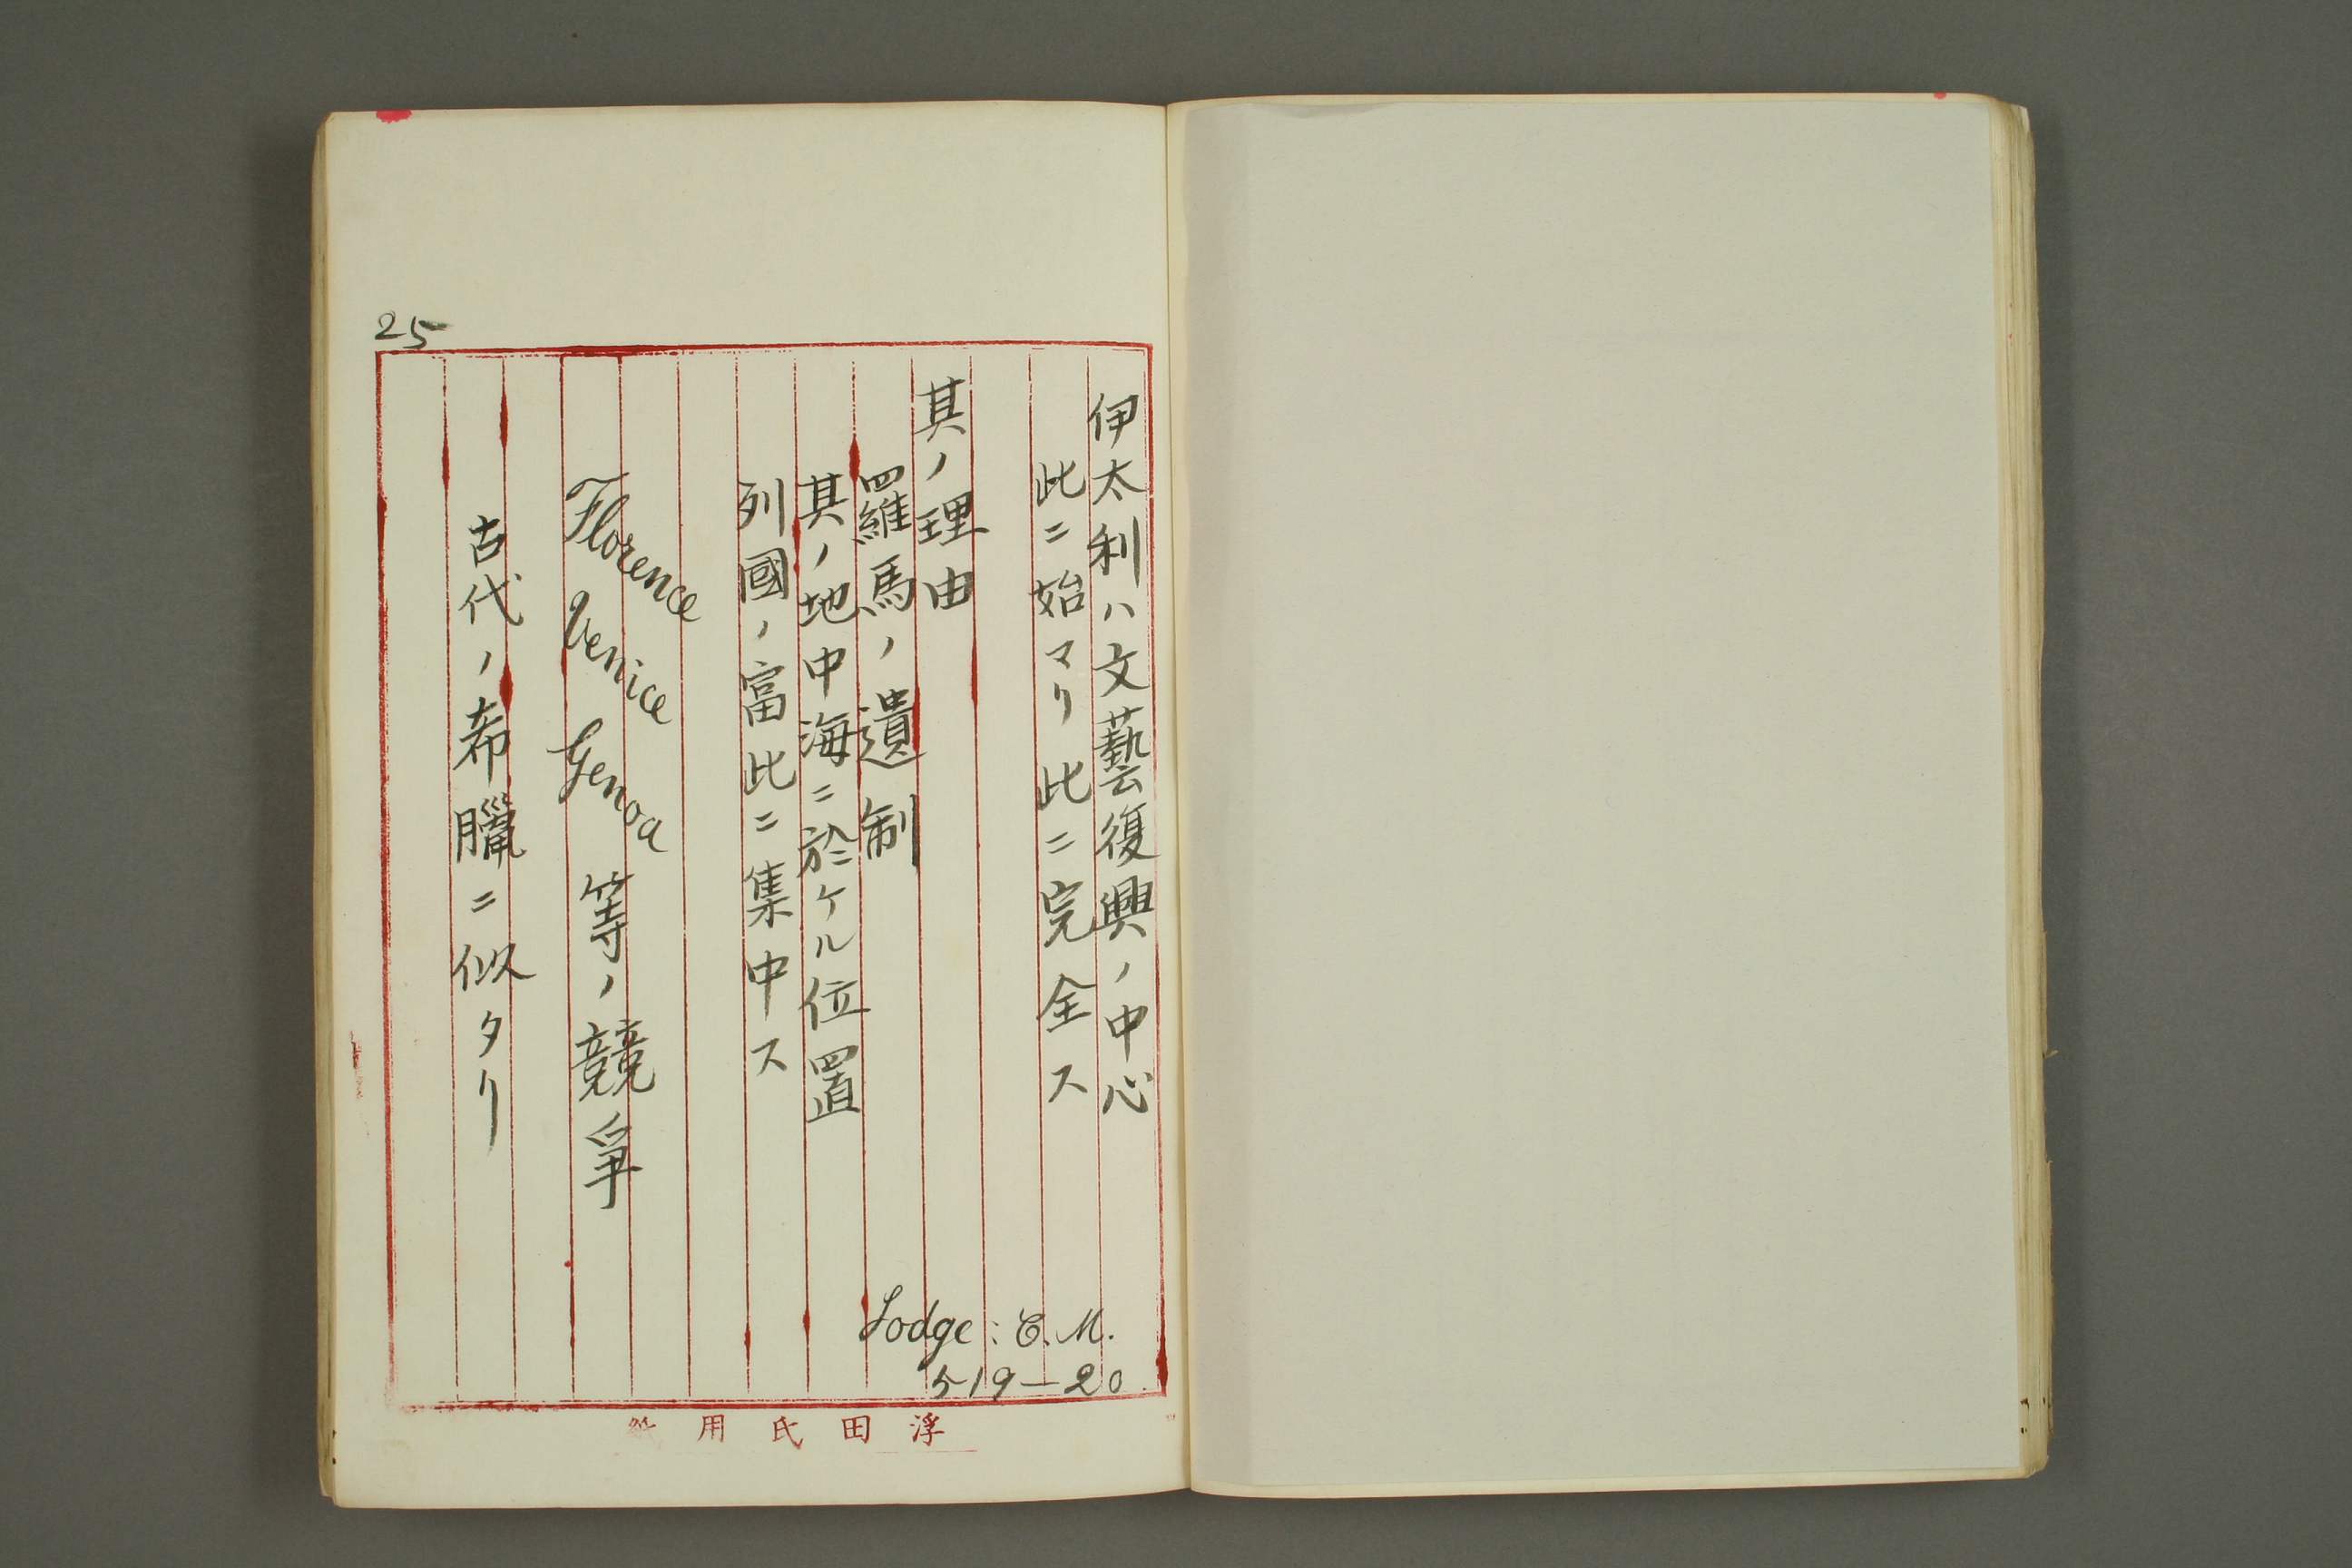 25
伊太利ハ文藝復興ノ中心
此ニ始マリ此ニ完全ス
其ノ理由
羅馬ノ遺制
其ノ地中海ニ於ケル位置
列國ノ富此ニ集中ス
Florence Venice Genoa 等ノ競爭
古代ノ希臘ニ似タリ
Lodge: C. M.
519—20
浮田氏用紙